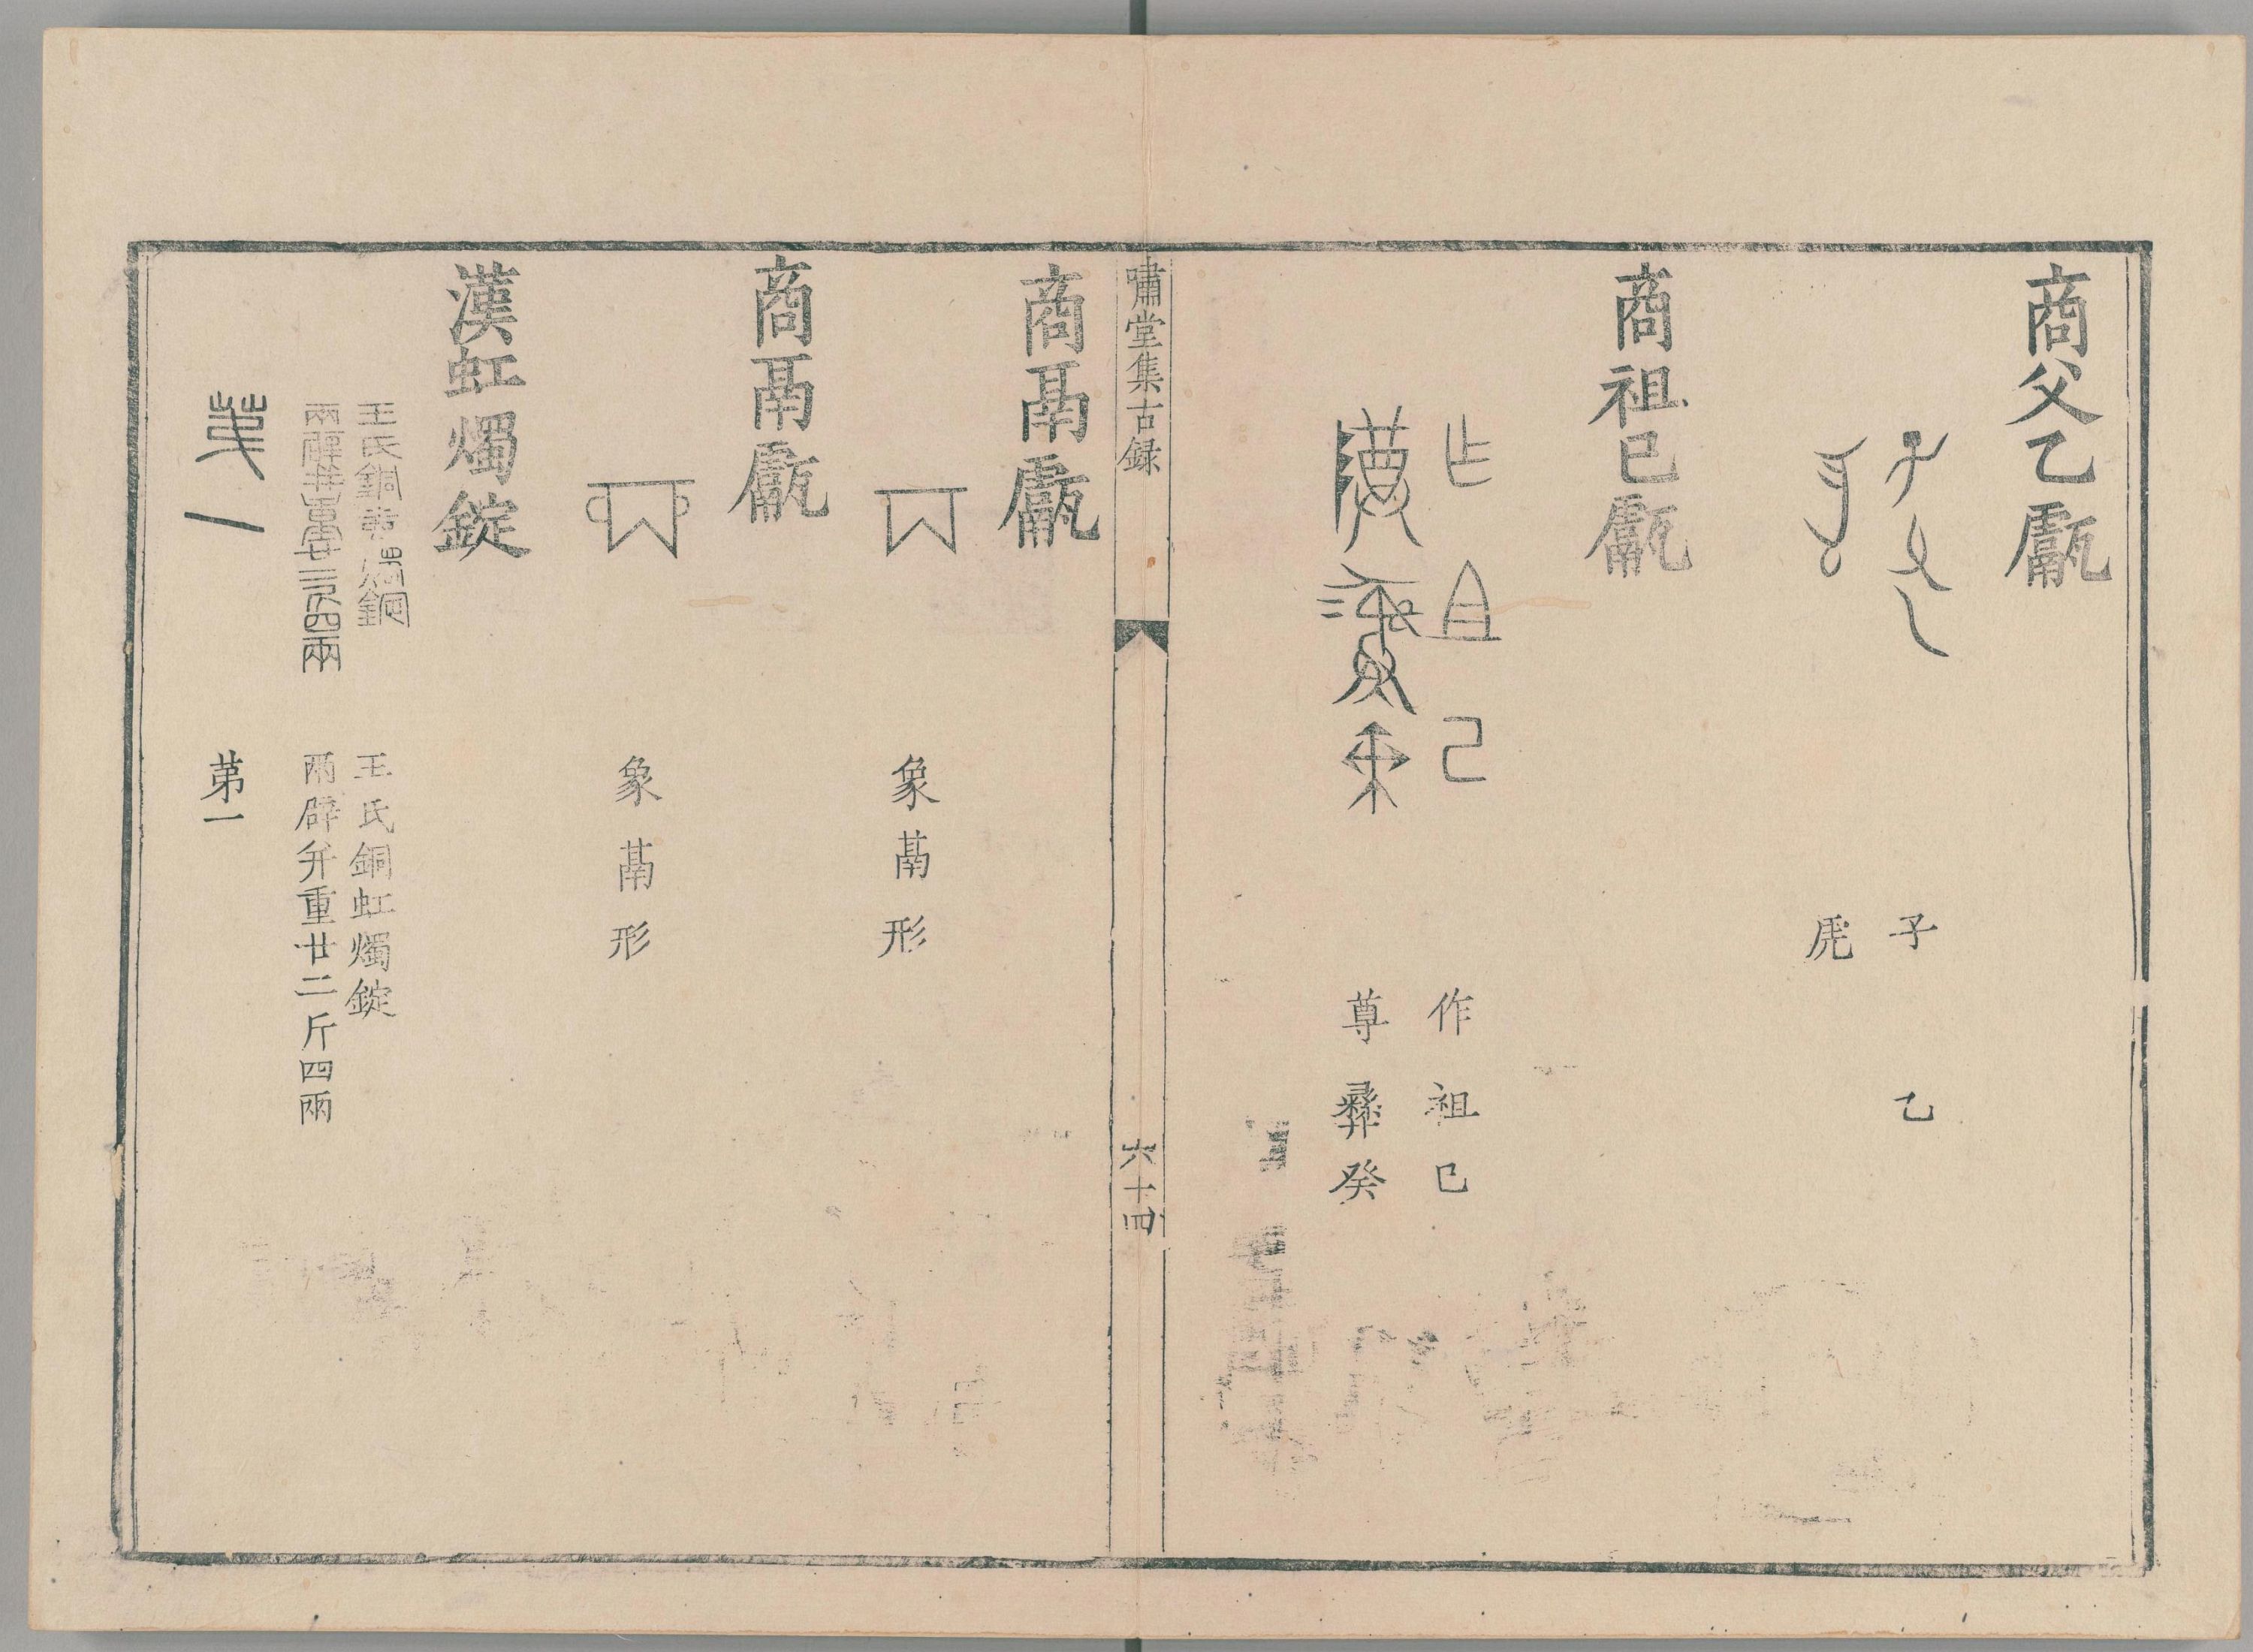 商父乙甗
子 乙
虎
商祖已甗
作祖已
尊彝癸
嘯堂集古録
六十四
商鬲甗
象鬲形
商鬲甗
象鬲形
漢虹燭錠
王氏銅虹燭錠
兩辟并重廿二斤四兩
苐一